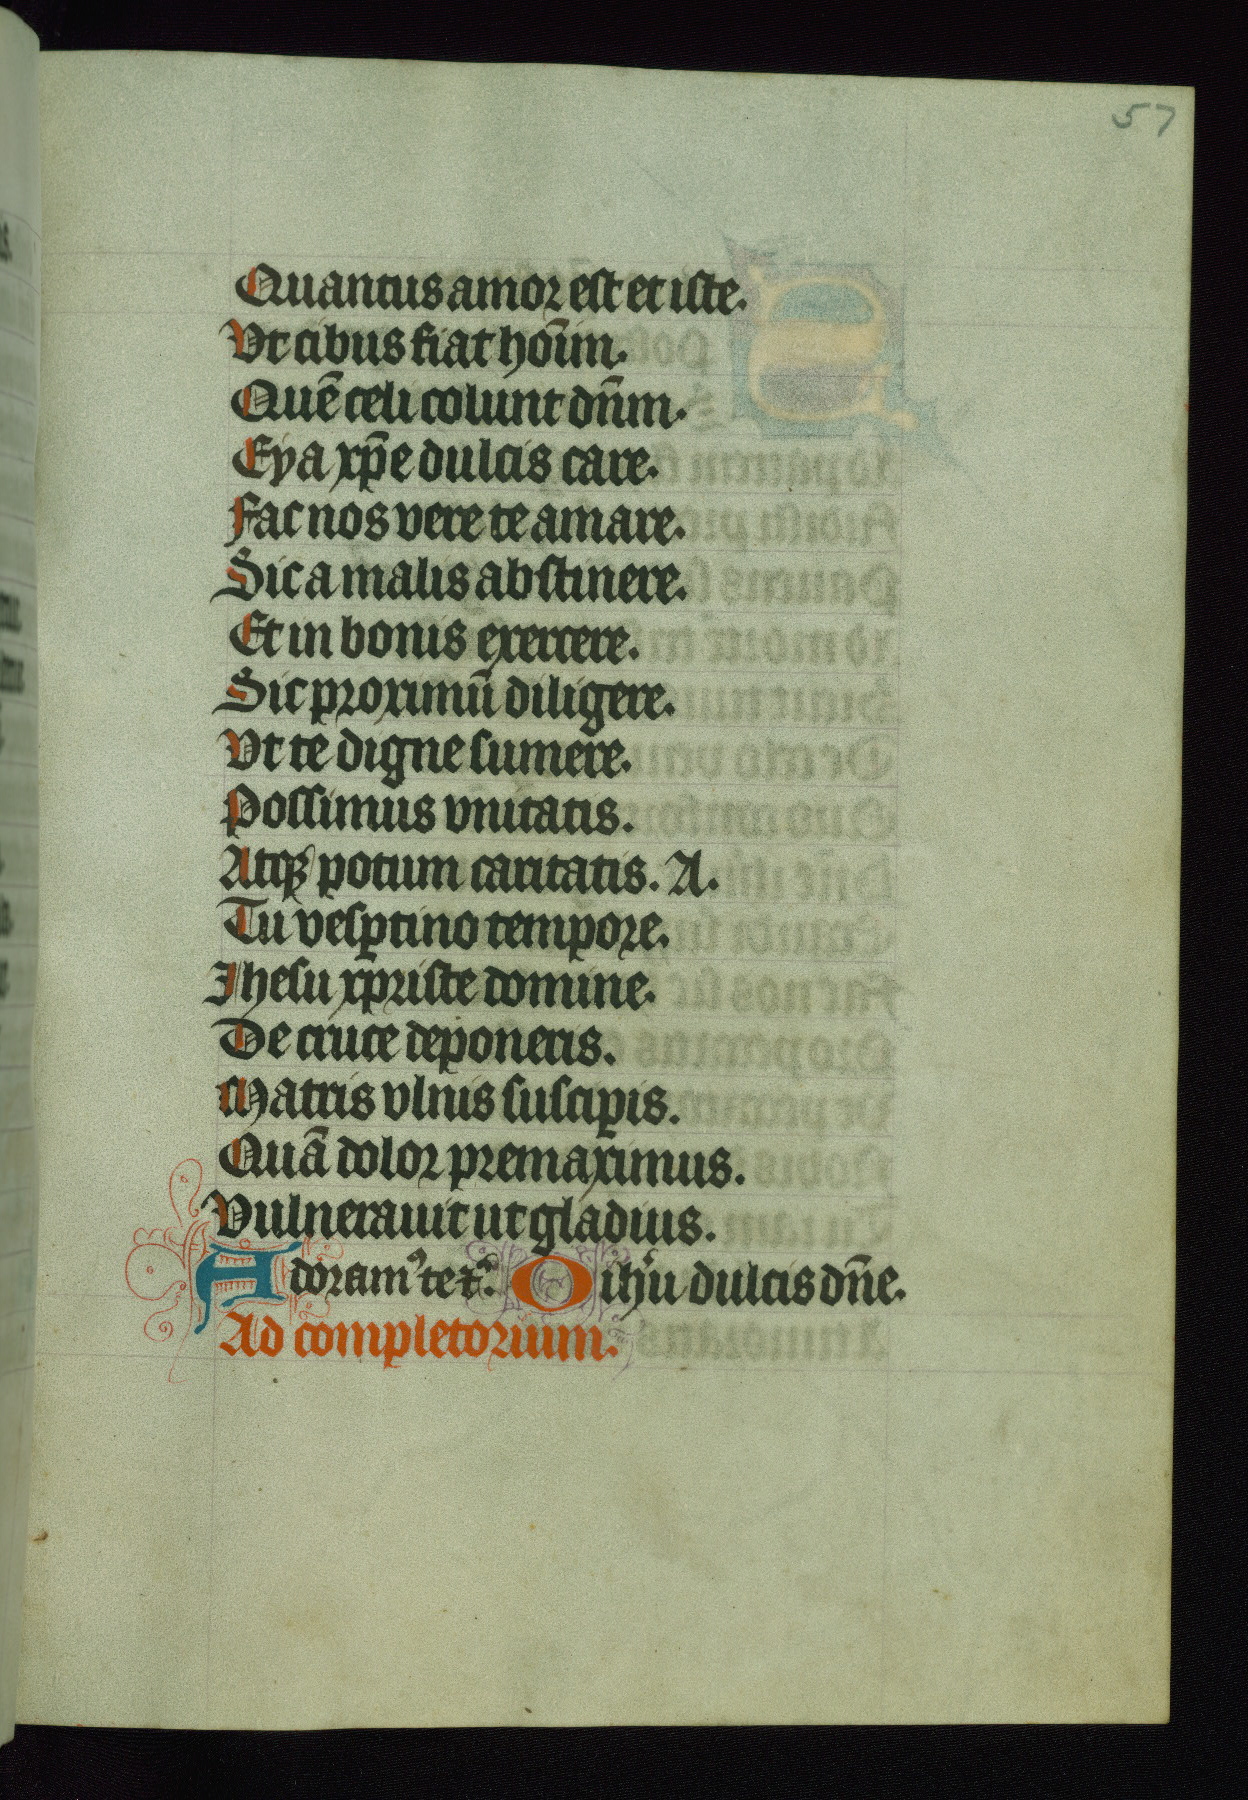 57
Quantus amor est et iste.
Vt cibus fiat hoīm.
Quē celi colunt dn̄m.
Eya xp̄e dulcis care.
Fac nos vere te amare.
Sic a malis abstinere.
Et in bonis exercere.
Sic proximū diligere.
Vt te digne sumere.
Possimus vnitatis.
Atqꝫ potum caritatis. A.
Tu vesꝑtino tempore.
Jhesu xpriste domine.
De cruce deponeris.
Matris vlnis suscipis.
Quā dolor premaximus.
Vulnerauit ut gladius.
Adoramꝰ te x. O ihu dulcis dn̄e.
Ad completorium.